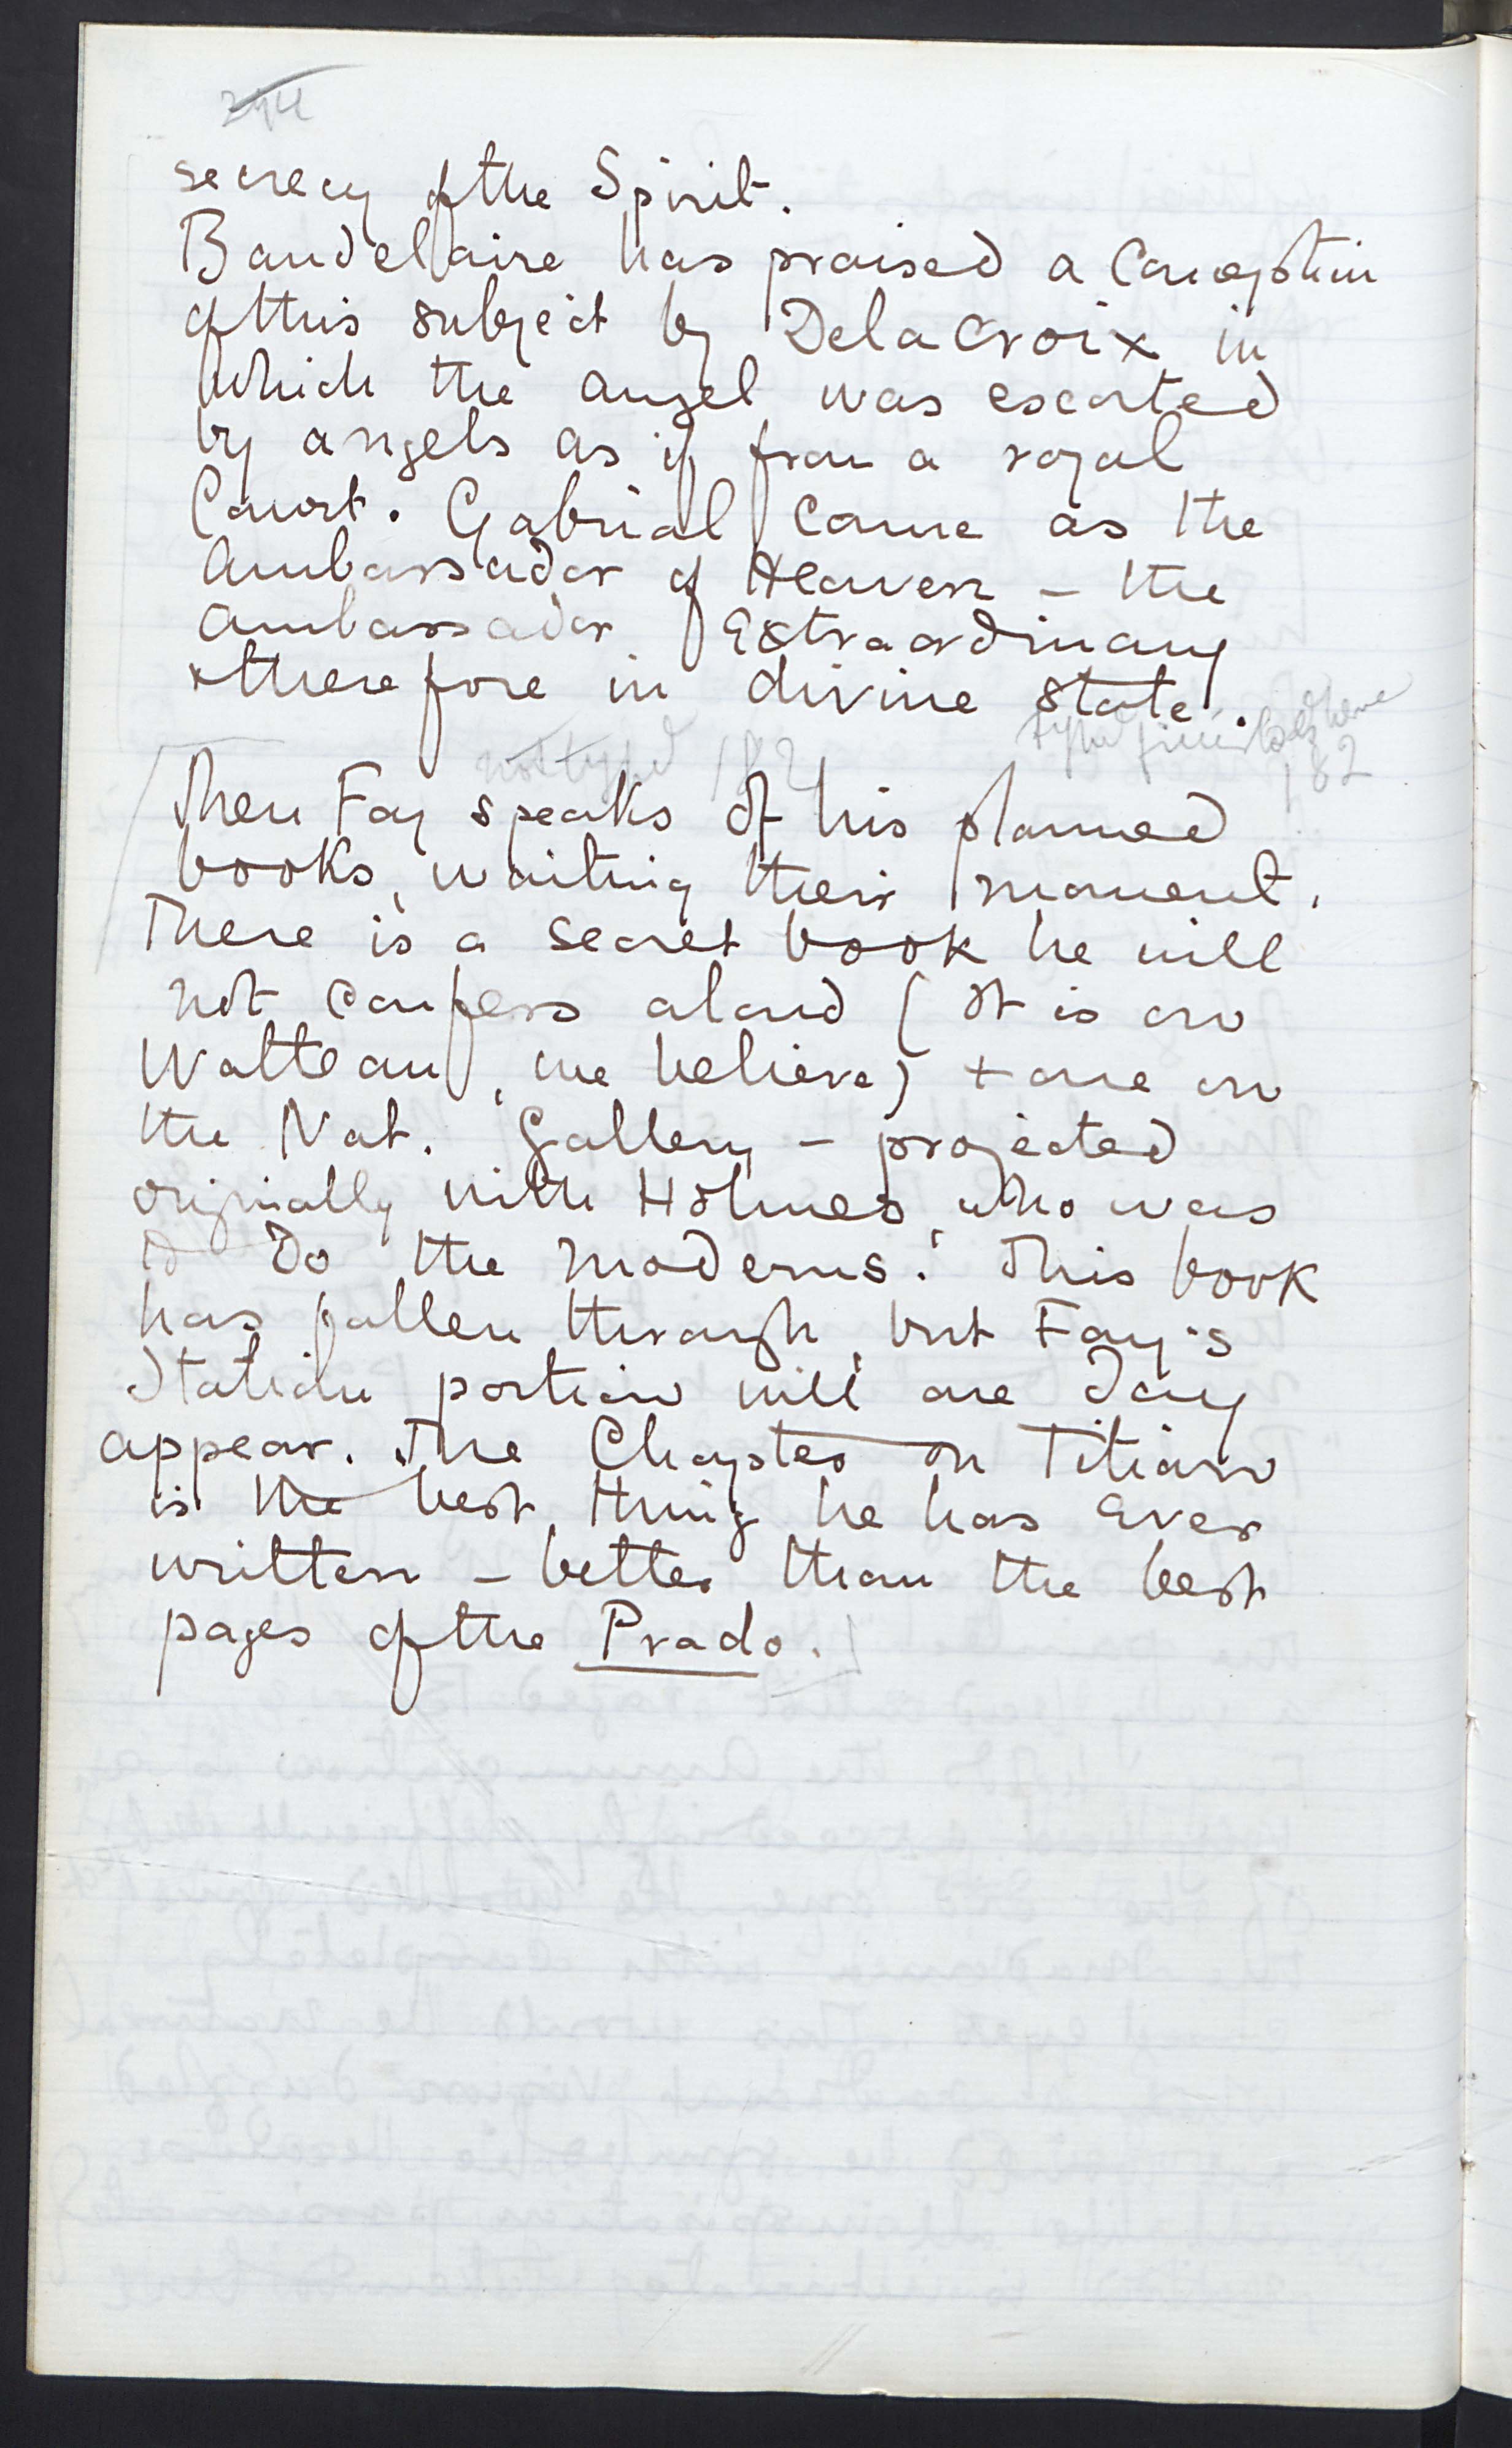 secrecy of the Spirit.
Baudelaire has praised a Conception
of this subject by Delacroix in
which the angel was escorted
by angels as if from a royal
Court. Gabrial came as the
Ambassador of Heaven – the
Ambassador Extraordinary
& therefore in divine state.
not typed 182
typed finis here
182
Then Fay speaks of his planned
books, waiting their moment.
There is a secret book he will
not confess aloud (It is on
Watteau, we believe) + one on
the Nat. Gallery – projected
originally with Holmes, who was
to do the moderns. This book
has fallen through, but Fay's
Italian portion will one day
appear. The Chapter on Titian
is the best thing he has ever
written – better than the best
pages of the Prado.]